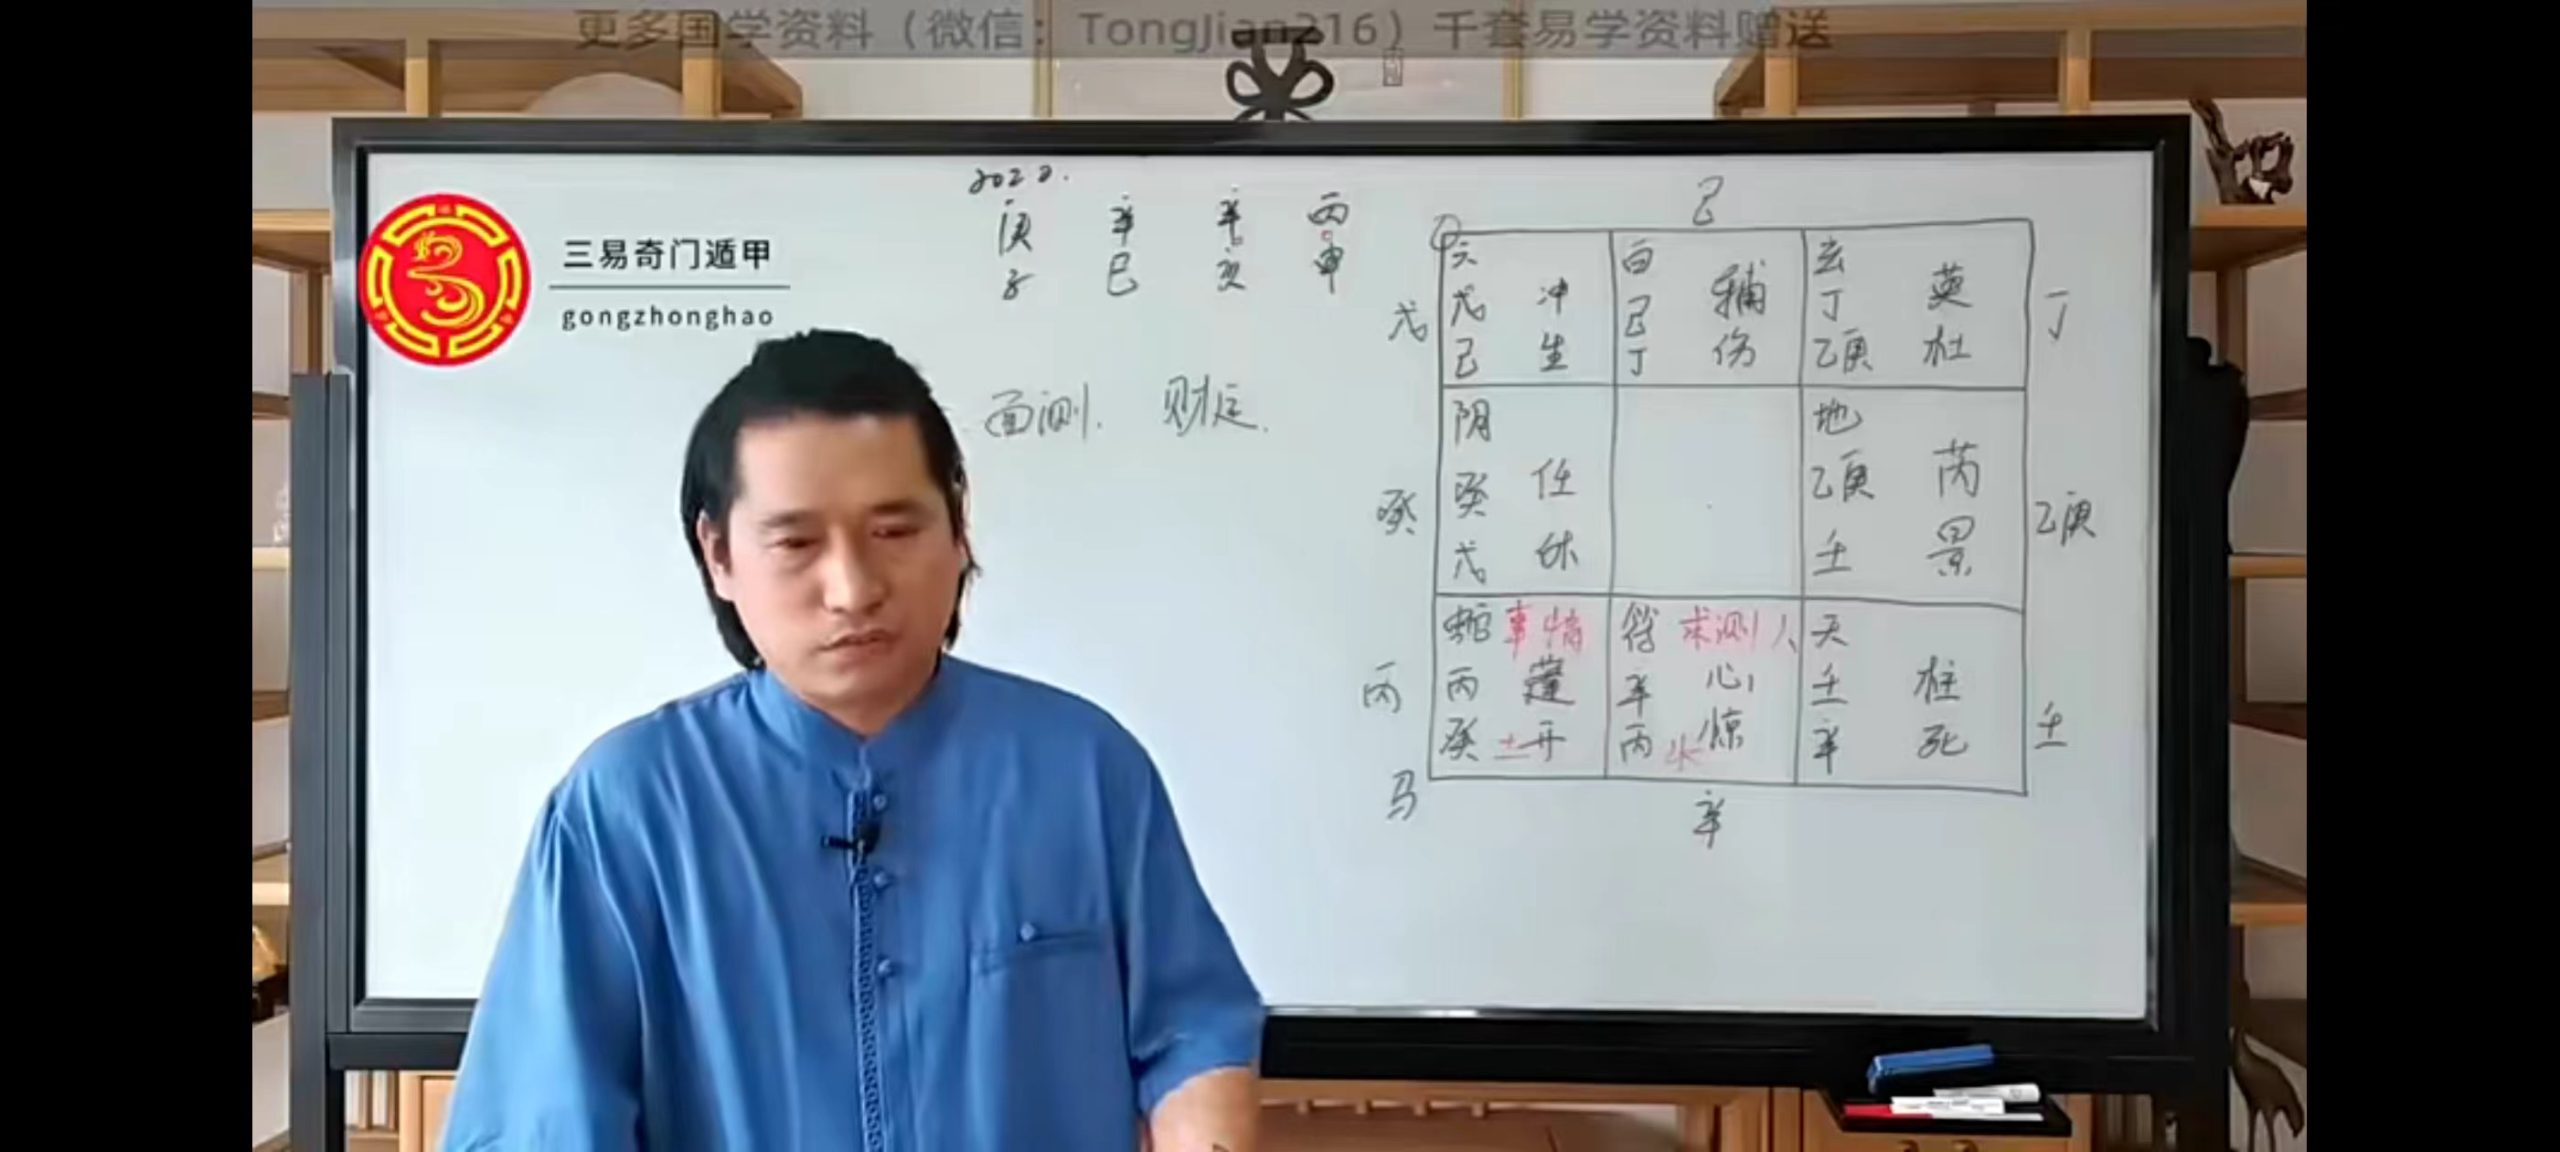 更多国学资料（微信：TongJian216）千套易学资料赠送
三易奇门遁甲
gongzhonghao
2020.
庚 辛 辛 丙
子 巳 亥 申
面测. 财运.
己
六 白 玄
戊 戊 冲 己 辅 丁 英 丁
己 生 丁 伤 乙庚 杜
阴 地
癸 癸 任 乙庚 芮 乙庚
戊 休 壬 景
蛇 事情 符 求测人 天
丙 丙 蓬 辛 心 壬 柱
癸 土 开 丙 水 惊 辛 死 壬
马 辛